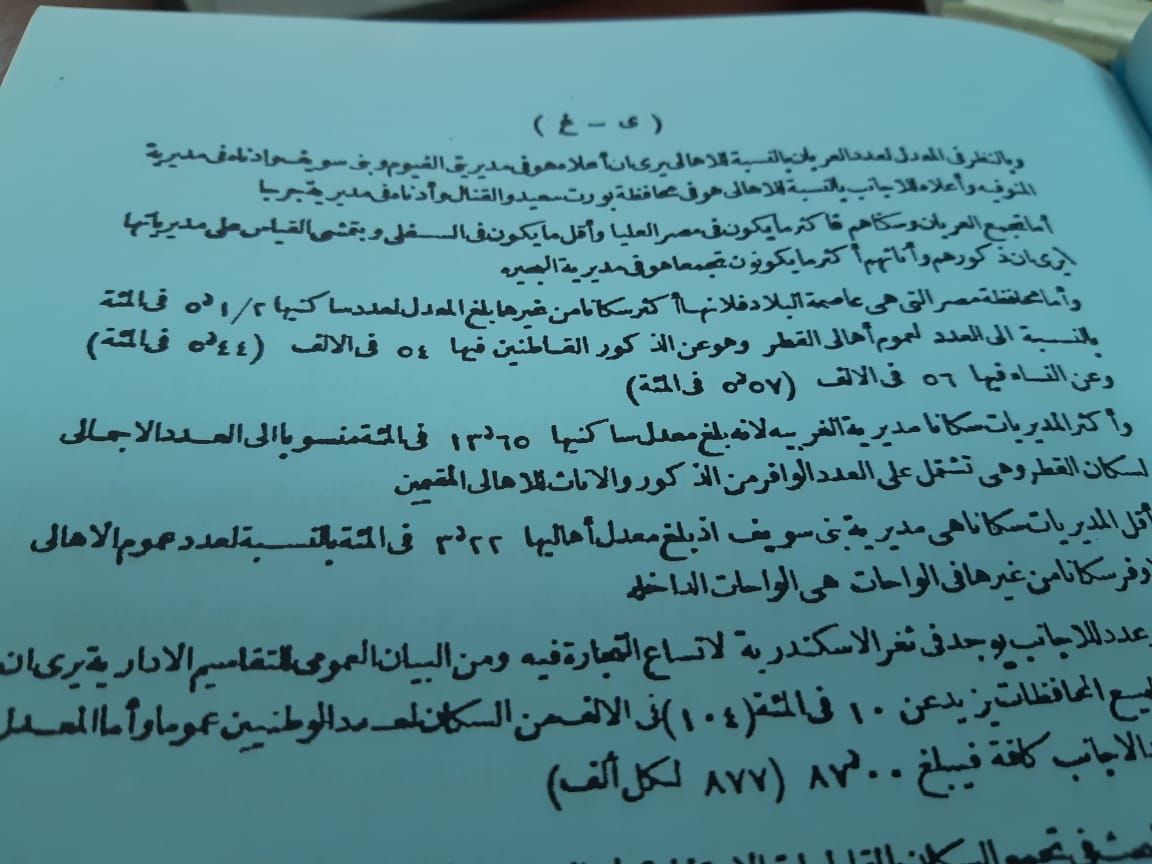 ( ى - غ )
وبالنظر فى المعدل لعدد العربان بالنسبة للاهالى يرى ان أعلاه هو فى مديريتى الفيوم وبنى سويف وادناه فى مديرية
المنوفيه وأعلاه للاجانب بالنسبة للاهالى هو فى محافظة بورت سعيد والقنال وأدناه فى مديرية جرجا
أما تجمع العربان وسكناهم فاكثر ما يكون فى مصر العليا وأقل ما يكون فى السفلى وبتمشى القياس على مديرياتها
يرى ان ذكورهم وأناثهم أكثر ما يكونون تجمعا هو فى مديرية البحيره
وأما محافظة مصر التى هى عاصمة البلاد فلانها أكثر سكانا من غيرها بلغ المعدل لعدد ساكنيها ١/٢ ٥ فى المئة
بالنسبة الى العدد لعموم أهالى القطر وهو عن الذكور القاطنين فيها ٥٤ فى الالف (٤٤ر٥ فى المئة)
وعن النساء فيها ٥٦ فى الالف (٥٧ر٥ فى المئة)
وأكثر المديريات سكانا مديرية الغربيه لانه بلغ معدل ساكنيها ٦٥ر١٣ فى المئة منسوبا الى العدد الاجمالى
لسكان القطر وهى تشتمل على العدد الوافر من الذكور والاناث للاهالى المقيمين
أقل المديريات سكانا هى مديرية بنى سويف اذ بلغ معدل أهاليها ٢٢ر٣ فى المئة بالنسبة لعدد عموم الاهالى
وفر سكانا من غيرها فى الواحات هى الواحات الداخله
عدد للاجانب يوجد فى ثغر الاسكندرية لاتساع التجارة فيه ومن البيان العمومى للتقاسيم الادارية يرى ان
المحافظات يزيد عن ١٠ فى المئة (١٠٤) فى الالف من السكان لعدد الوطنيين عموما وأما المعدل
الاجانب كافة فيبلغ ٠٠ر٨٧ (٨٧٧ لكل ألف)
فى تجمع السكان